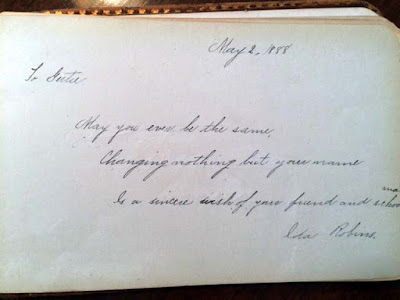 May 2, 1888
To Gertie
May you ever be the same,
Changing nothing but your name
Is a sincere wish of your friend and school
ma
Ida Robins.